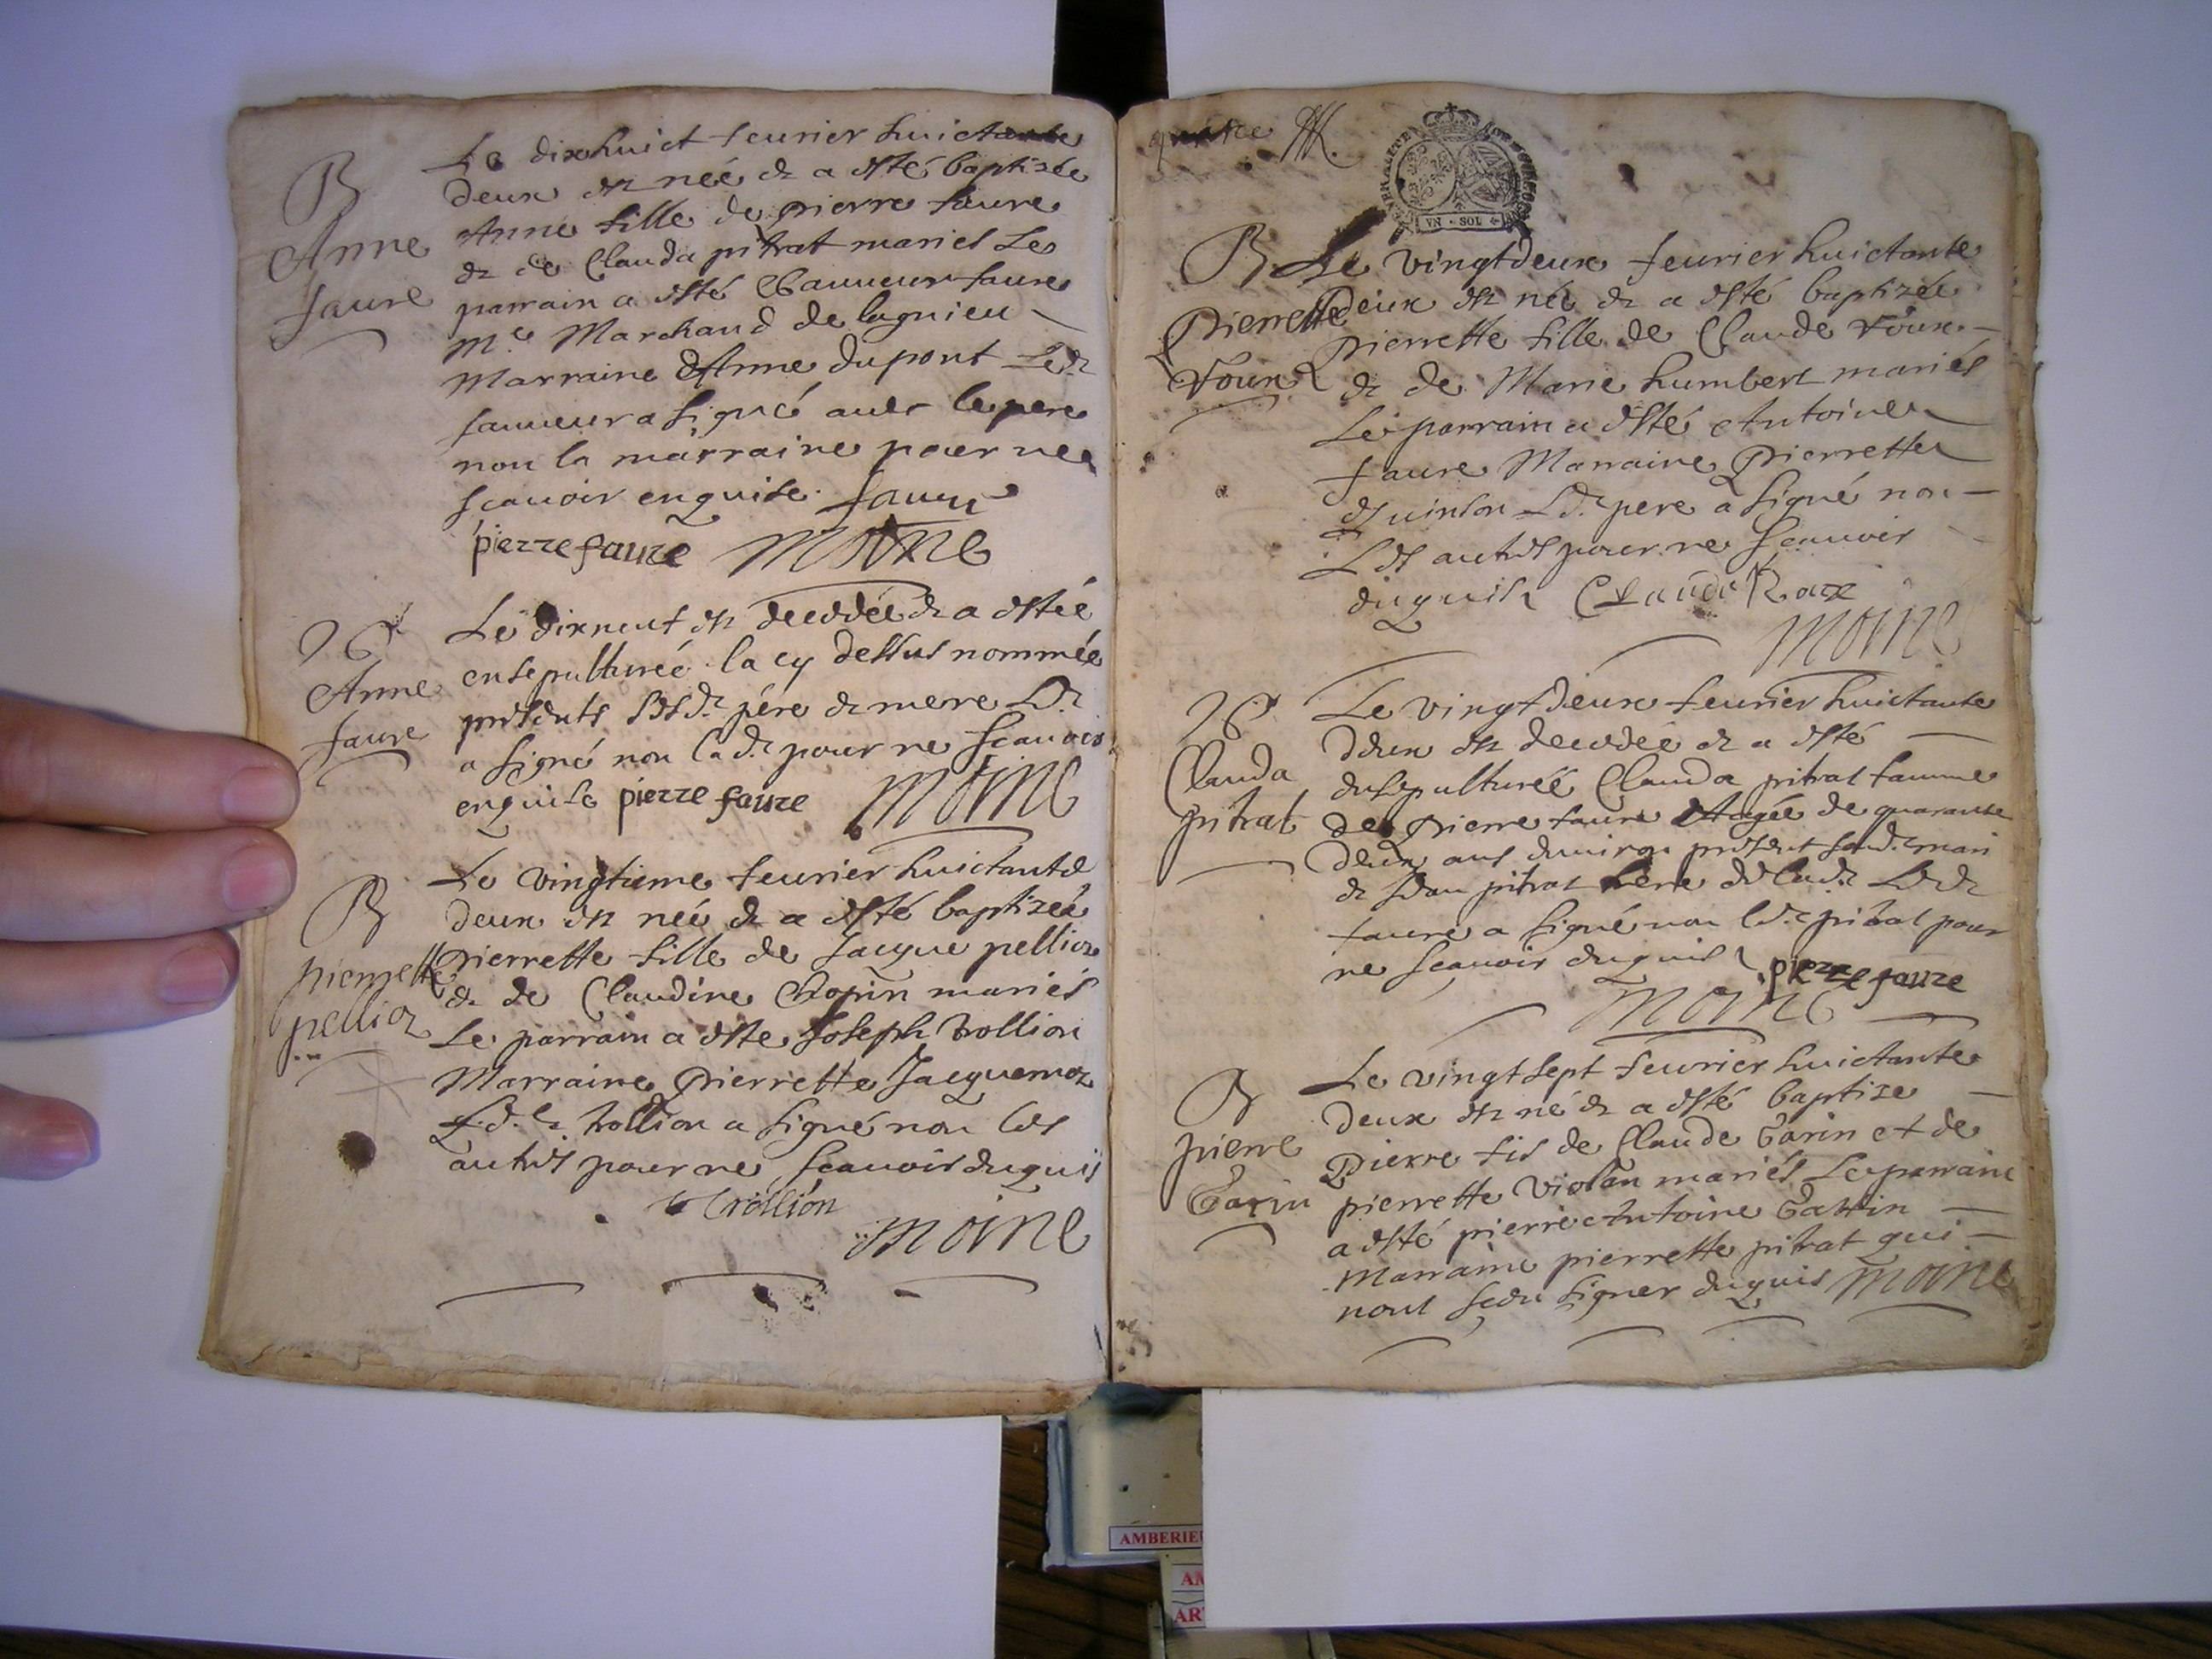 B
Anne
faure
Le dixhuict feurier huictante
deux est née & a esté baptisée
Anne fille de pierre faure
& de Clauda pitrat mariés Le
parrain a esté Sauueur faure
Me Marchand de lagnieu
Marraine Anne dupont Led
sauueur a signé auec le pere
non la marraine pour ne
scauoir enquise. faure
pierre faure Moine
Anne
faure
Le dixneuf est decedée & a estée
ensepulturée la cy dessus nommée
presents lesd père & mere Ld
a signé non lad pour ne scauoir
enquise pierre faure Moine
B
pierrette
pellion
Le vingtieme feurier huictante
deux est née & a esté baptizée
pierrette fille de Jacque pellion
& de Claudine Chopin mariés
Le parrain a este Joseph trollion
Marraine pierrette Jacquemoz
Led trollion a signé non les
autres pour ne scauoir enquis
trollion
Moine
quatre
GENERALITE DE BOURGOGNE
VN SOL
B
Pierrette
roux
Le vingtdeux feurier huictante
deux est née & a esté baptizée
pierrette fille de Claude roux
& de Marie humbert mariés
Le parrain a esté Antoine
faure Marraine Pierrette
quinson Ld pere a signé non
Les autres pour ne scauoir
enquis Claude Roux
Moine
Clauda
pitrat
Le vingtdeux feurier huictante
deux est decedée & a esté
ensepulturée Clauda pitrat famme
de pierre faure Aagée de quarante
deux ans enuiron present sond mari
& Jean pitrat frere de lad Led
faure a signé non led pitrat pour
ne scauoir enquis pierre faure
Moine
B
pierre
Garin
Le vingtsept feurier huictante
deux est né & a esté baptize
Pierre fis de Claude Garin et de
pierrette violan mariés Le parrain
a esté pierre Antoine Garin
Marraine pierrette pitrat qui
nont sceu signer enquis Moine
AMBERIEU
AM
AR